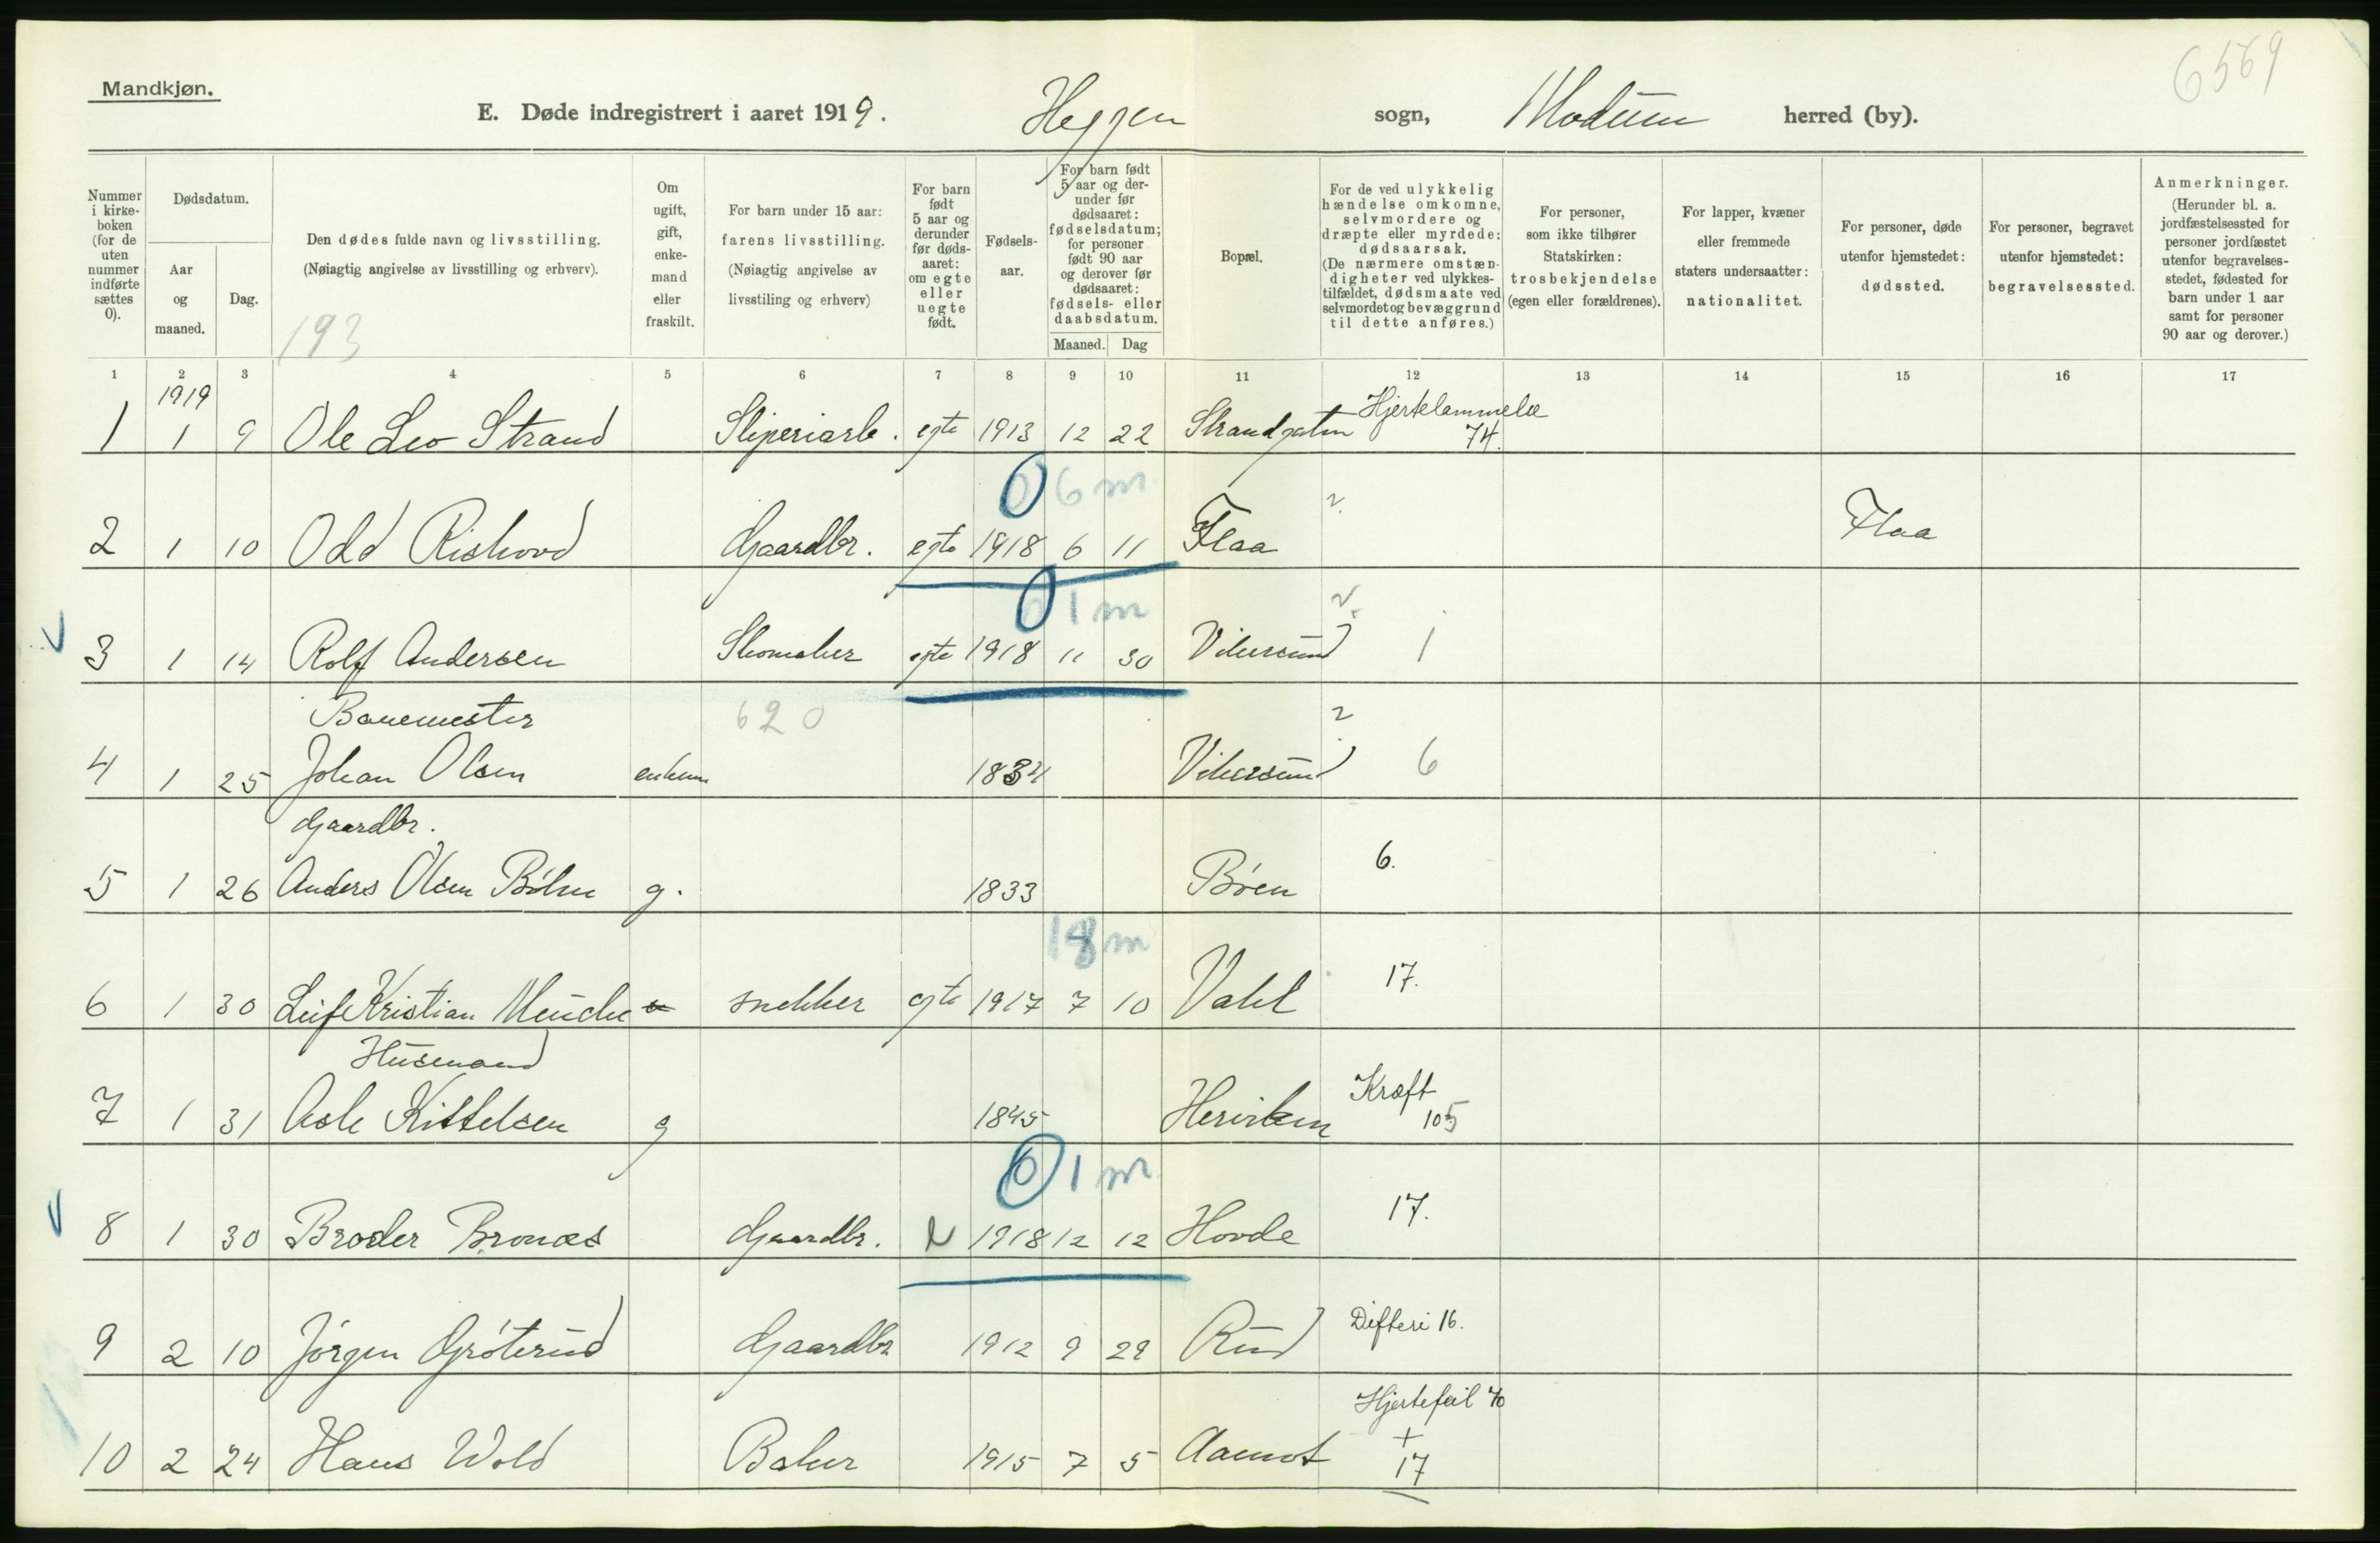 6569
Mandkjøn.
E. Døde indregistrert i aaret 1919. Heggen sogn, Modum herred (by).
Nummer i kirke-boken (for de uten nummer indførte sættes 0).
Dødsdatum.
Aar og maaned.
Dag.
Den dødes fulde navn og livsstilling.
(Nøiagtig angivelse av livsstilling og erhverv).
193
Om ugift, gift, enke-mand eller fraskilt.
For barn under 15 aar:
farens livsstilling.
(Nøiagtig angivelse av livsstiling og erhverv)
For barn født 5 aar og derunder før døds-aaret: om egte eller uegte født.
Fødsels-aar.
For barn født 5 aar og der-under før dødsaaret: fødselsdatum; for personer født 90 aar og derover før dødsaaret: fødsels- eller daabsdatum.
Maaned. Dag
Bopæl.
For de ved ulykkelig hændelse omkomne, selvmordere og dræpte eller myrdede: dødsaarsak.
(De nærmere omstæn-digheter ved ulykkes-tilfældet, dødsmaate ved selvmordet og bevæggrund til dette anføres.)
For personer, som ikke tilhører Statskirken: trosbekjendelse (egen eller forældrenes).
For lapper, kvæner eller fremmede staters undersaatter: nationalitet.
For personer, døde utenfor hjemstedet: dødssted.
For personer, begravet utenfor hjemstedet: begravelsessted.
Anmerkninger.
(Herunder bl. a. jordfæstelsessted for personer jordfæstet utenfor begravelses-stedet, fødested for barn under 1 aar samt for personer 90 aar og derover.)
1 2 3 4 5 6 7 8 9 10 11 12 13 14 15 16 17
1919
Hjertelammelse
1 1 9 Ole Leo Strand Sliperiarb. egte 1913 12 22 Strandgaten 74.
0 6 m ?
2 1 10 Odd Rishovd Gaardbr. egte 1918 6 11 Flaa Flaa
0 1 m ?
3 1 14 Rolf Andersen Skomaker egte 1918 11 30 Vikersund 1
Banemester 620 ?
4 1 25 Johan Olsen enkem 1834 Vikersund 6
Gaardbr.
5 1 26 Anders Olsen g. 1833 Bøen 6.
18 m
6 1 30 Leif Kristian snekker egte 1917 7 10 17.
Husmand Kræft
7 1 31 Asle Kittelsen g 1845 105
0 1 m
8 1 30 Broder Bronæs Gaardbr. 1918 12 12 Hovde 17.
9 2 10 Jörgen Grøterud Gaardbr 1912 9 29 Rud Difteri 16.
Hjertefeil 70
+
10 2 24 Hans Wold Baker 1915 7 5 Aamot 17